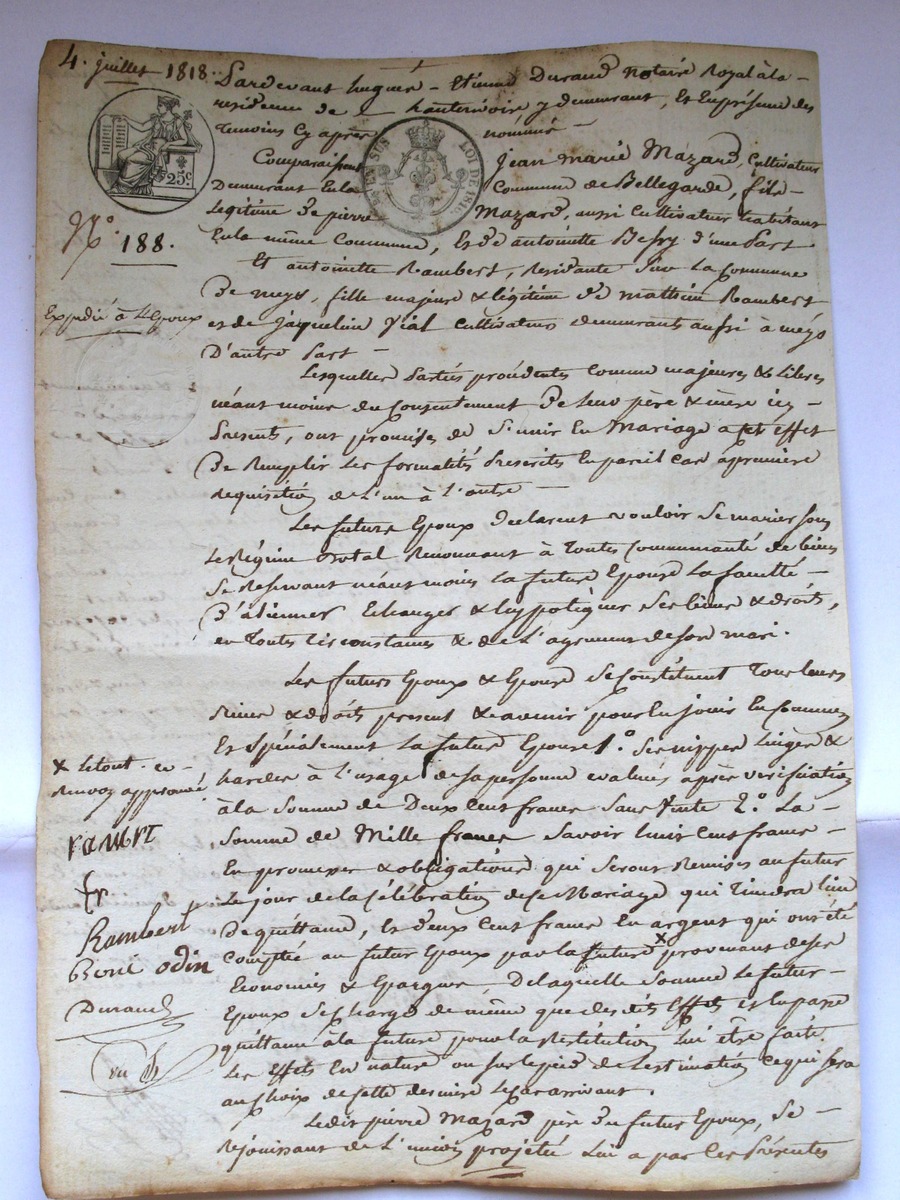 4. juillet 1818.
Pardevant hugues - Etienne Durand notaire Royal à la -
residence de chantemoire y demeurant, Et En présence des
temoins Cy après nommés -
25c
EN SUS
LOI DE 1816
Comparaissent Jean marie Mazard, Cultivateur
Demeurant En la Commune de Bellegarde, fils -
Legitime De pierre Mazard, aussi Cultivateur habitant
En la même Commune, Et de antoinette Bessy d'une Part
No 188.
Et antoinette Rambert, Residante Sur La Commune
De meys, fille majeure & légitime de mathieu Rambert
Expedié à l'Epoux
et de Jaqueline Vial Cultivateurs demeurants aussi à meys
D'autre Part -
Lesquelles Parties procédentes Comme majeures & Libres
néantmoins du Consentement De leurs père & mère icy
Presents, ont promises de S'unir En Mariage a cet effet
De Remplir Les formalités Prescrites En pareil Cas à premiere
requisition de L'un à L'autre -
Les futurs Epoux declarent vouloir Se marier Sous
Le Régime Dotal Renonçant à toutes Communauté de biens
Se Reservant néantmoins La future Epouse La faculté -
D'aliénner Echanger & hypotéquer Ses biens & droits,
en toutes Circonstances & de L'agrement de Son mari.
Les futurs Epoux & Epouse Se Constituent tous leurs
Biens & droits present & avenir pour En jouir En Commun
Et Spécialement La future Epouse 1.o Ses nippes Linges &
hardes à L'usage de sa personne evalués après verification
à la Somme de Deux Cent francs Sans vente 2.o La -
Somme de Mille francs Savoir huit Cent francs -
En promesses & obligations qui Seront Remises au futur
Le jour de la Célébration de Ce Mariage qui tiendra lieu
De quittance, Et Deux Cent francs En argent qui ont été
Comptée au futur Epoux par la future x provenant de ses
Economies & Epargnes, De laquelle Somme Le futur -
Epoux Se charge de même que des dits Effets Et En passe
quittance à la future pour la Restitution Lui être faite.
Les Effets En nature ou Sur le pied de L'estimation Ce qui Sera
au Choix de Cette derniere Le Cas arrivant.
Ledit pierre Mazard père du futur Epoux, Se -
rejouissant de L'union projetée Lui a par Ces Présentes
x Le tout ce
renvoy approuvé
Rambert
Odin
Durand